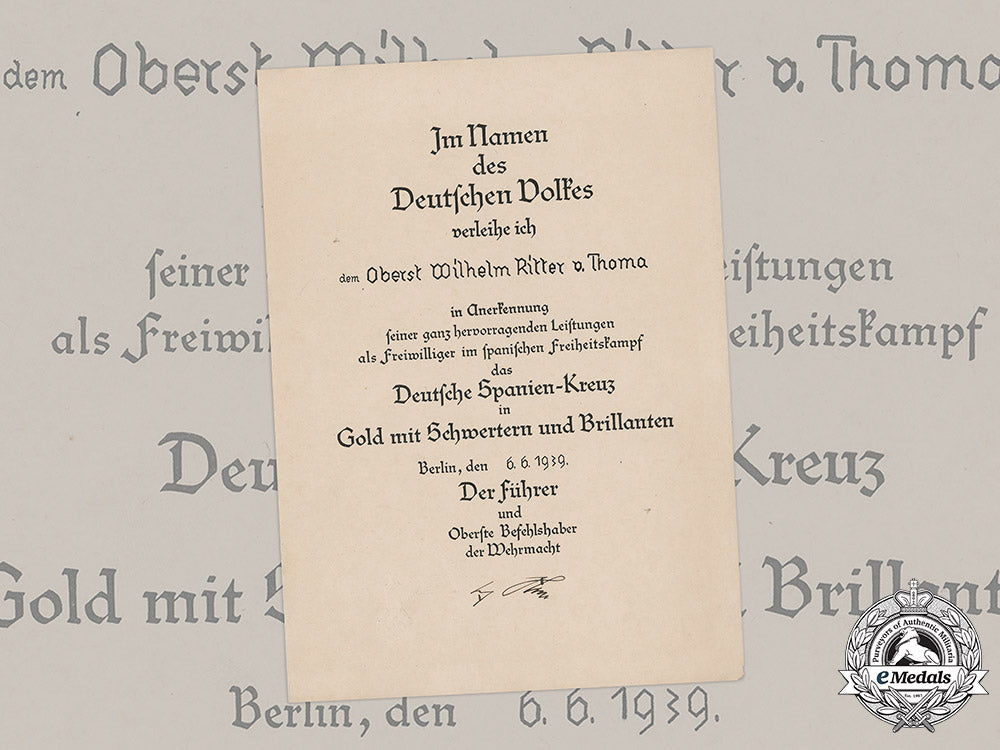 Im Namen
des
Deutschen Volkes
verleihe ich
dem Oberst Wilhelm Ritter v. Thoma
in Anerkennung
seiner ganz hervorragenden Leistungen
als Freiwilliger im spanischen Freiheitskampf
das
Deutsche Spanien-Kreuz
in
Gold mit Schwertern und Brillanten
Berlin, den 6. 6. 1939.
Der Führer
und
Oberste Befehlshaber
der Wehrmacht
dem Oberst Wilhelm Ritter v. Thoma
seiner eistungen
als Freiwil eiheitskampf
Deu Kreuz
Gold mit Brillant
Berlin, den 6. 6. 1939.
Purveyors of Authentic Militaria
eMedals